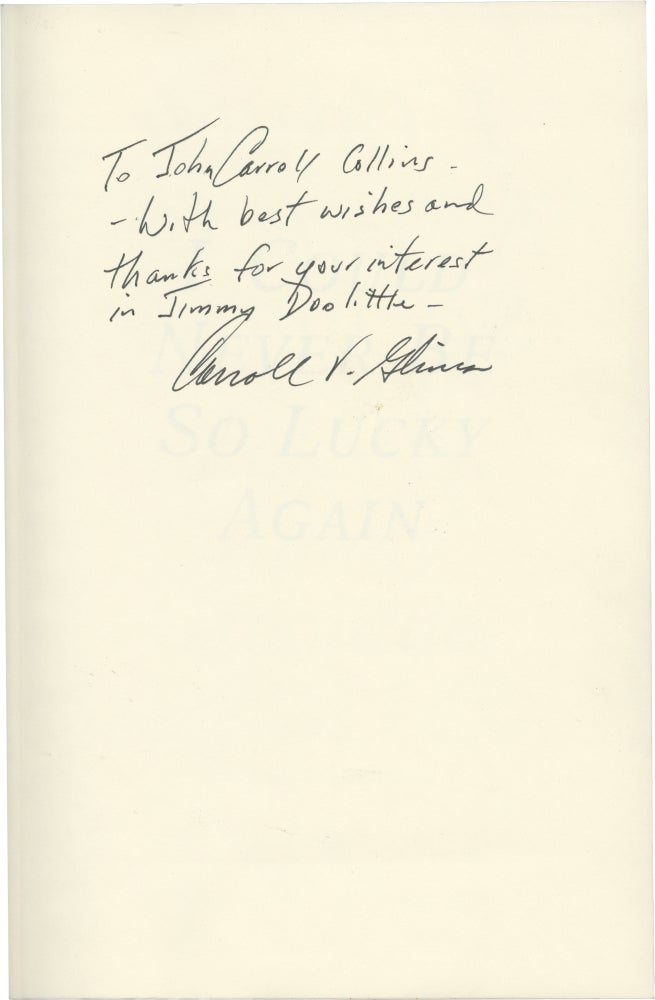 To John Carroll Collins -
- With best wishes and
thanks for your interest
in Jimmy Doolittle -
Carroll V. Glines
NEVER BE
SO LUCKY
AGAIN